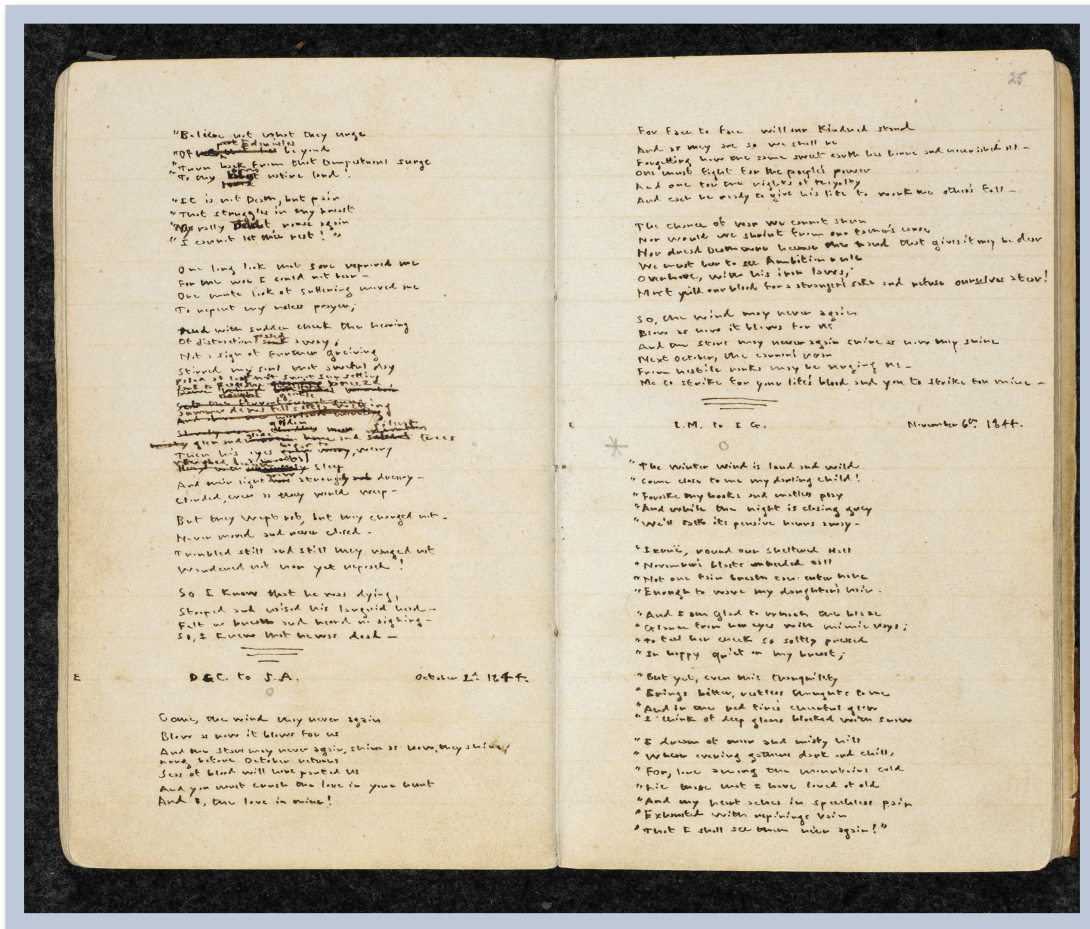 "Believe not what they urge
past Eden isles
"Of beyond
"Turn back from that tempestuous surge
"To my native land!
"It is not Death, but pain
"That struggles in my breast
"Nay rally rouse again
"I cannot let thee rest!"
One long look that sore reproved me
For the woe I could not bear –
One mute look of suffering moved me
To repent my useless prayer;
And with sudden check the heaving
Of distraction passed away;
Not a sign of further grieving
Stirred my soul that awful day
Paled at last the sweet sun setting
Sunk to peace the breeze
Summer dews fell softly wetting
glen and glade and silent trees
Then his eyes began to weary
Weighed beneath a mortal sleep
And their light grew strangely dreary –
Clouded, even as they would weep –
But they wept not, but they changed not –
Never moved and never closed –
Troubled still and still they ranged not
Wandered not nor yet reposed!
So I knew that he was dying,
Stooped and raised his languid head –
Felt no breath and heard no sighing –
So, I knew that he was dead –
E D.G.C. to J.A. October 2d 1844.
Come, the wind may never again
Blow as now it blows for us
And the stars may never again, shine as now, they shine;
Long before October returns
Seas of blood will have parted us
And you must crush the love in your heart
And I, the love in mine!
25
For face to face will our Kindred stand
And as they are so we shall be
Forgetting how the same sweet earth has borne and nourished all –
One must fight for the people's power
And one for the rights of Royalty
And each be ready to give his life to work the other's fall –
The chance of war we cannot shun
Nor would we shrink from our father's cause
Nor dread Death more because the hand that gives it may be dear
We must bear to see Ambition rule
Over love, with his iron laws;
Must yield our blood for a stranger's sake and refuse ourselves a tear!
So, the wind may never again
Blow as now it blows for us
And the stars may never again shine as now they shine
Next October, the cannon's roar
From hostile ranks may be urging me –
Me to strike for your life's blood and you to strike for mine –
E E.M. to E G. November 6th 1844.
"The winter wind is loud and wild
"Come close to me my darling child!
"Forsake thy books and mateless play
"And while the night is closing grey
"We'll talk its pensive hours away –
"Iernë, round our sheltered Hall
"November's blasts unheeded call
"Not one faint breath can enter here
"Enough to wave my daughter's hair.
"And I am glad to watch the blaze
"Glance from her eyes with mimic rays;
"To feel her cheek so softly pressed
"In happy quiet on my breast;
"But yet, even this tranquility
"Brings bitter, restless thoughts to me
"And in the red fire's cheerful glow
"I think of deep glens blocked with snow
"I dream of moor and misty hill
"Where evening gathers dark and chill,
"For, lone among the mountains cold
"Lie those that I have loved of old
"And my heart aches in speechless pain
"Exhausted with repinings vain
"That I shall see them ne'er again!"